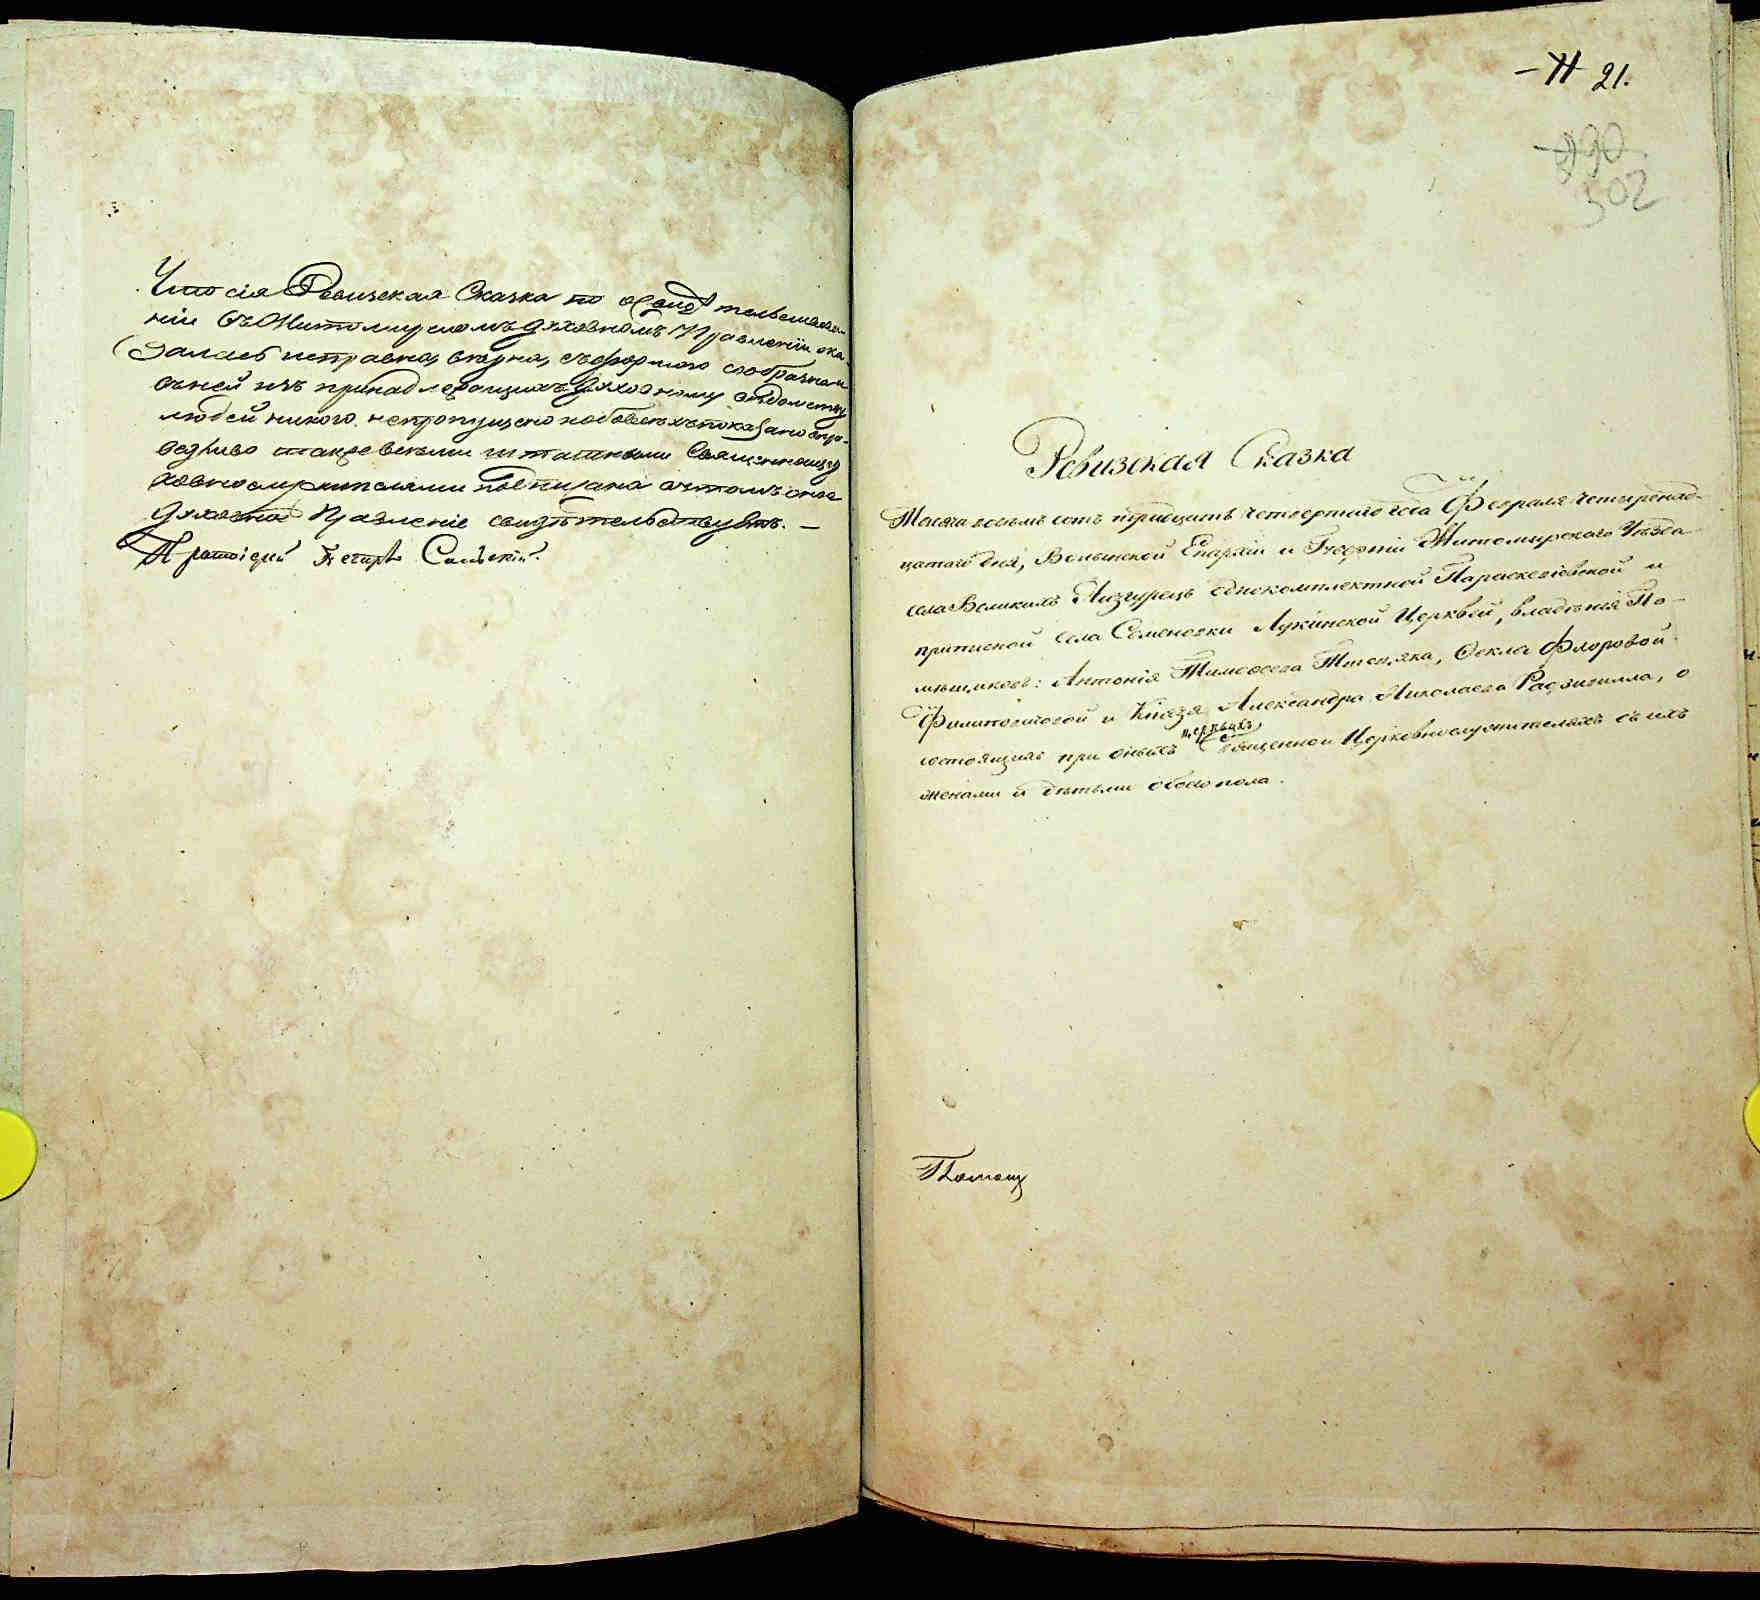 Что сія Ревизская Сказка по освидѣтельствова-
ніи въ Житомирскомъ духовномъ Правленіи ока
залась исправна, вѣрна, съ формою сообразна и
въ ней изъ принадлежащихъ духовному вѣдомству
людей никого непропущено и обо всѣхъ показано спра-
ведливо и такъ всѣми штатными Священноцер
ковнослужителями подписана въ томъ оное
духовное Правленіе свидѣтельствуетъ. —
Протоіерей
21.
302
Ревизская Сказка
Тысяча восемь сотъ тридцать четвертаго года Февраля четыренад-
цатаго дня, Волынской Епархіи и Губерніи Житомирскаго Уѣзда
села Великихъ Низгурецъ однокомплектной Параскевіевской и
приписной села Семеновки Лукинской Церквей, владѣнія По-
мѣщиковъ: Антонія Тимофеева Феклы Флоровой
и Князя Александра Николаева Радзивилла, о
состоящихъ при оныхъ церквахъ Священно и Церковнослужителяхъ съ ихъ
женами и дѣтьми обоего пола.